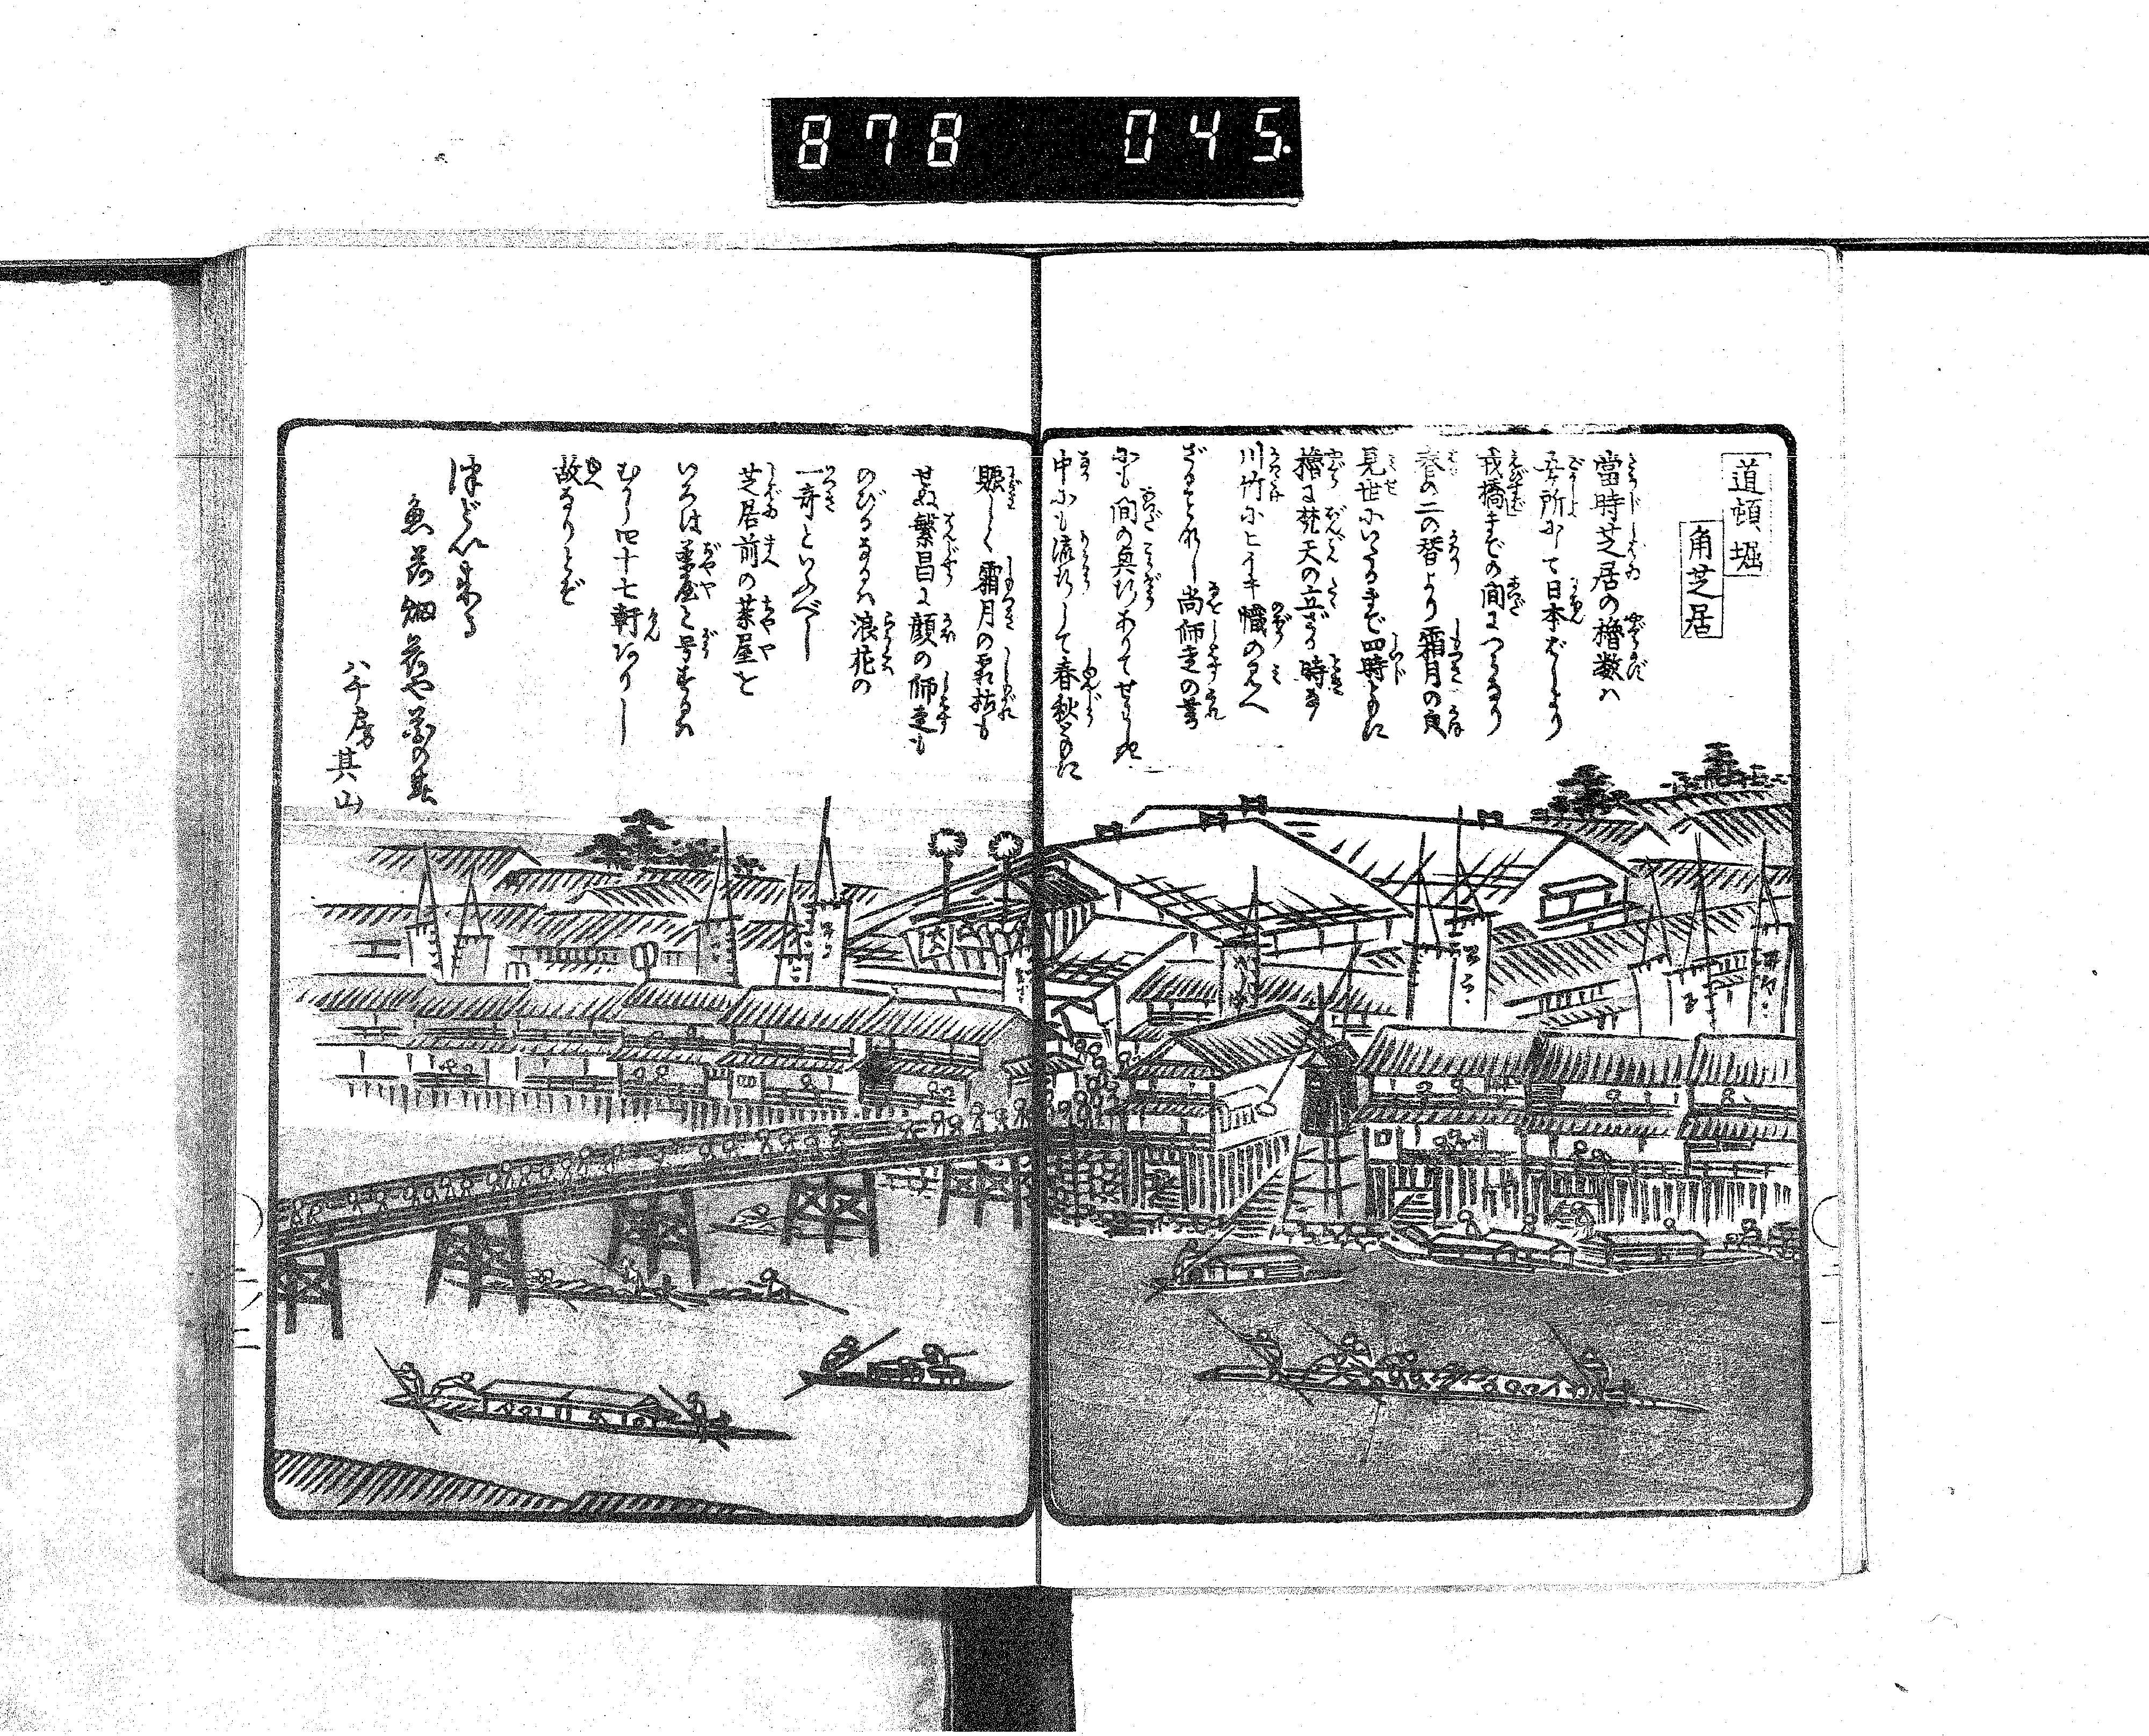 878 045.
道頓堀
角芝居
當時芝居の櫓数ハ
五ヶ所にして日本ばしより
戎橋までの間につらなり
春の二の替より霜月の㒵
見世にいたるまで四時ともに
櫓に梵天の立ざる時なく
川竹にヒイキ幟の見へ
ざるとなし尚師走の
にも間の興行ありて
中にも流行して春秋ともに
賑しく霜月の霜枯も
せぬ繁昌に顔の師走も
のびるなるハ浪花の
一奇といふべし
芝居前の茶屋を
いろは茶屋と号するハ
むかし四十七軒ありし
故なりとぞ
魚 畑 や の
八千房其山